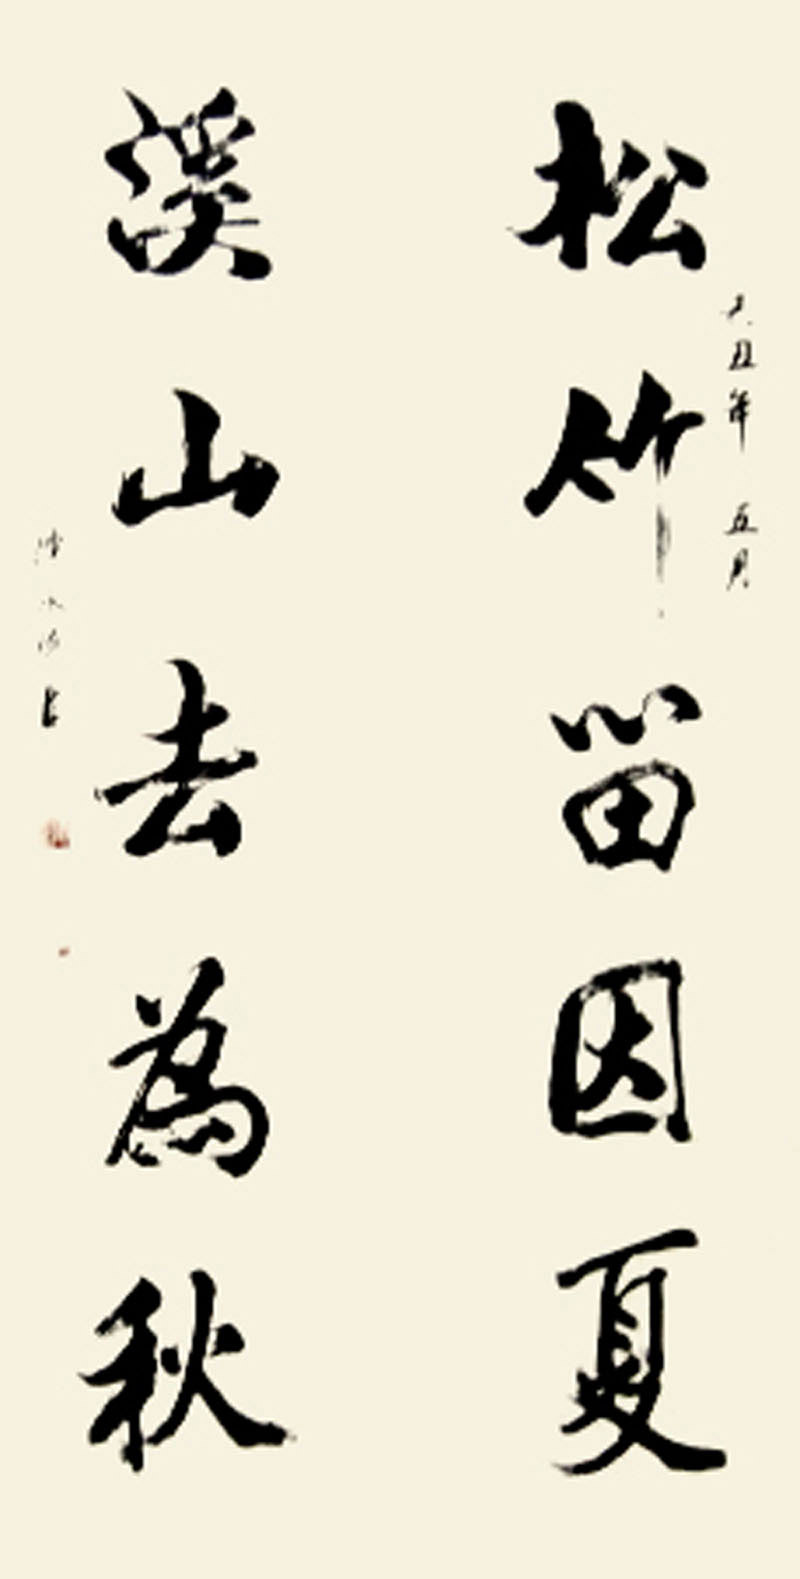 松竹留因夏
丑年 五月
溪山去為秋